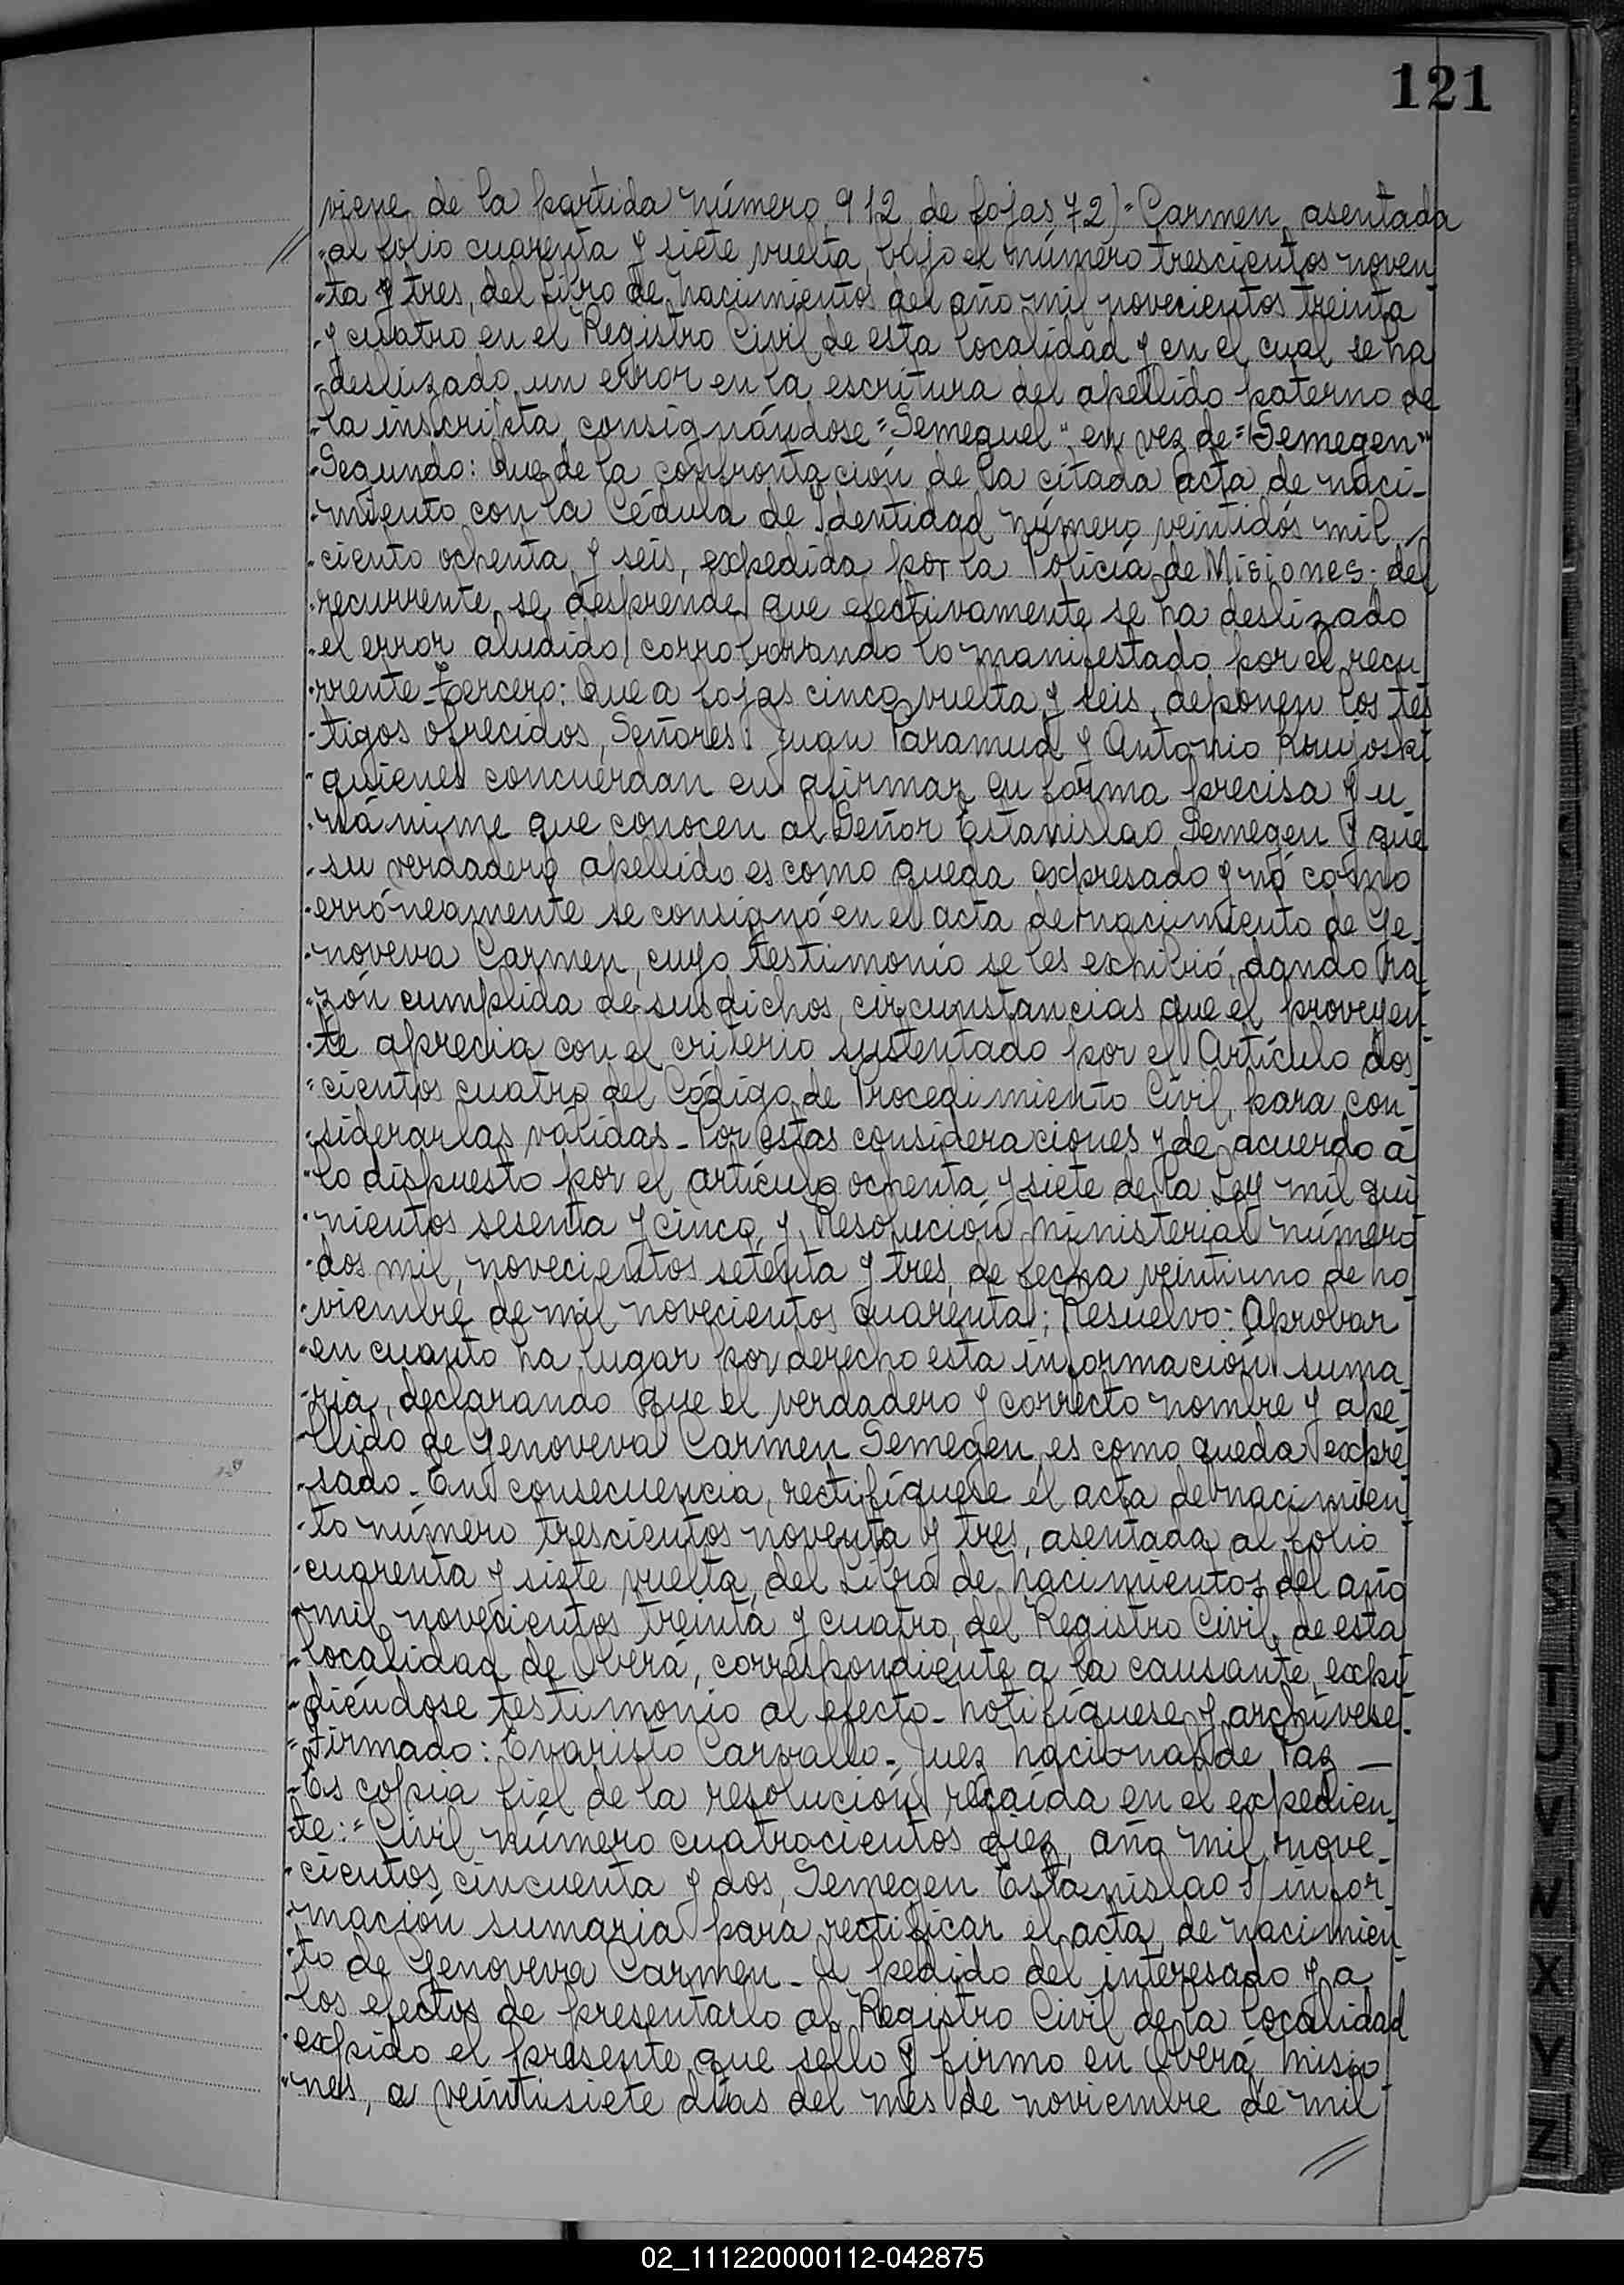 121
viene de la partida número 912 de fojas 72)-"Carmen, asentada
"al folio cuarenta y siete vuelta, bajo el número trescientos noven
"ta y tres, del libro de nacimientos del año mil novecientos treinta
"y cuatro en el Registro Civil de esta localidad y en el cual se ha
"deslizado un error en la escritura del apellido paterno de
"la inscripta, consignándose "Semeguel" en vez de "Semegen"
"Segundo: Que de la confrontación de la citada acta de naci-
"miento con la Cédula de Identidad número veintidós mil
"ciento ochenta y seis, expedida por la Policía de Misiones, del
"recurrente, se desprende que efectivamente se ha deslizado
"el error aludido, corroborando lo manifestado por el recu
"rrente-Tercero: Que a fojas cinco vuelta y seis, deponen los tes
"tigos ofrecidos, Señores Juan Paramud y Antonio Krujoski
"quienes concuerdan en afirmar en forma precisa y u
"nánime que conocen al Señor Estanislao Semegen y que
"su verdadero apellido es como queda expresado y nó como
"erróneamente se consignó en el acta de nacimiento de Ge-
"noveva Carmen, cuyo testimonio se les exhibió, dando ra
"zón cumplida de sus dichos, circunstancias que el proveyen
"te aprecia con el criterio sustentado por el Artículo dos
"cientos cuatro del Código de Procedimiento Civil, para con
"siderarlas válidas-Por estas consideraciones y de acuerdo a
"lo dispuesto por el artículo ochenta y siete de la Ley mil qui
"nientos sesenta y cinco, y Resolución Ministerial número
"dos mil, novecientos setenta y tres, de fecha veintiuno de no
"viembre de mil novecientos cuarenta; Resuelvo: Aprobar
"en cuanto ha lugar por derecho esta información suma
"ria, declarando que el verdadero y correcto nombre y ape-
"llido de Genoveva Carmen Semegen, es como queda expre
"sado-En consecuencia, rectifíquese el acta de nacimien
"to número trescientos noventa y tres, asentada al folio
"cuarenta y siete vuelta, del Libro de nacimientos del año
"mil novecientos treinta y cuatro, del Registro Civil de esta
"localidad de Oberá, correspondiente a la causante, expi
"diéndose testimonio al efecto-Notifíquese y archívese
"Firmado: Evaristo Carvallo-Juez Nacional de Paz-
"Es copia fiel de la resolución recaída en el expedien
"te:" Civil número cuatrocientos diez, año mil nove-
"cientos cincuenta y dos, Semegen Estanislao S/ infor
"mación sumaria para rectificar el acta de nacimien
"to de Genoveva Carmen-A pedido del interesado y a
"los efectos de presentarlo al Registro Civil de la localidad
"expido el presente que sello y firmo en Oberá, Misio
"nes, a veintisiete días del mes de noviembre de mil
//
Q
R
S
T
U
V
W
X
Y
Z
02_111220000112-042875